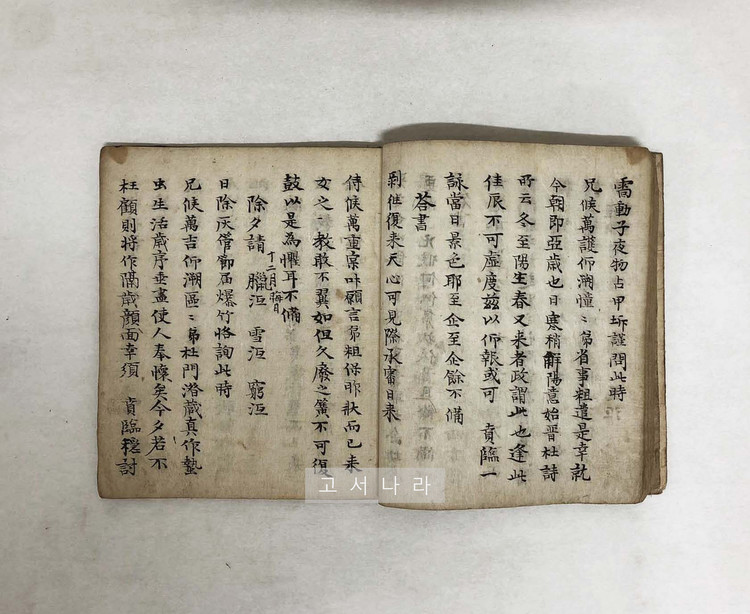 雷動子夜物占甲坼謹問此時
兄候萬護仰溯憧〻弟省事粗遣是幸就
今朝即亞歲也日寒稍解陽意始晋杜詩
所云冬至陽生春又来者政謂此也逢此
佳辰不可虛度玆以仰報或可 賁臨一
詠當日景色耶至企至企餘不備
答書
剝往復来天心可見際承審日来
侍候萬重寀叶願言弟粗保昨狀而已来
汝之教敢不翼如但久廢之簧不可復
鼓以是為懼耳不備
十二月晦日
除夕請 臘沍 雪沍 窮沍
日除灰管節届爆竹恪詢此時
兄候萬吉仰溯區〻弟杜門潜蔵真作蟄
虫生活歲序垂盡使人奉懐矣今夕若不
枉顧則将作隔歲顔面幸須 賁臨穩討
고서나라